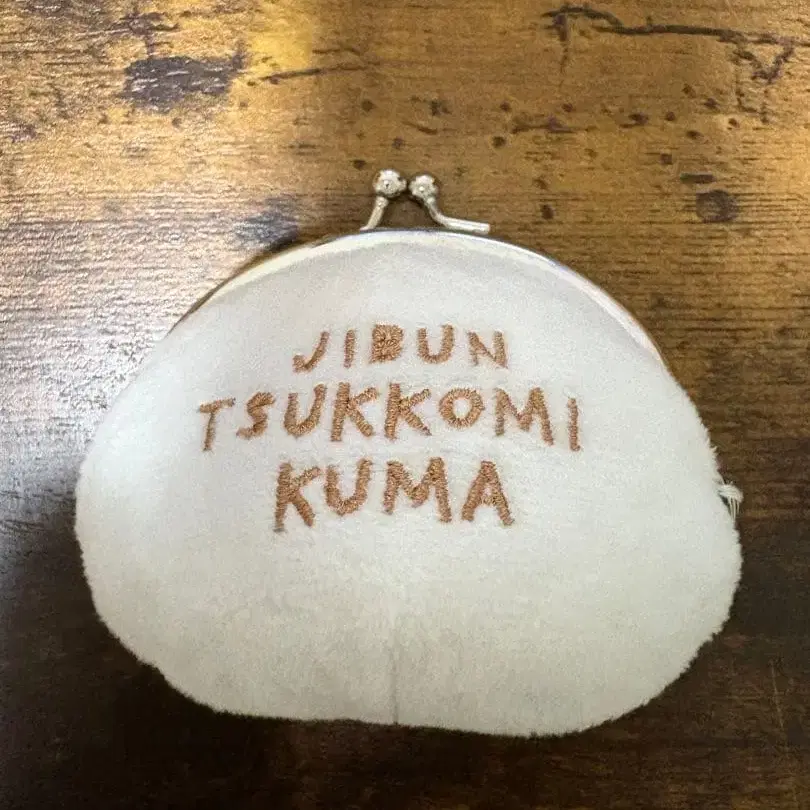 JIBUN
TSUKKOMI
KUMA